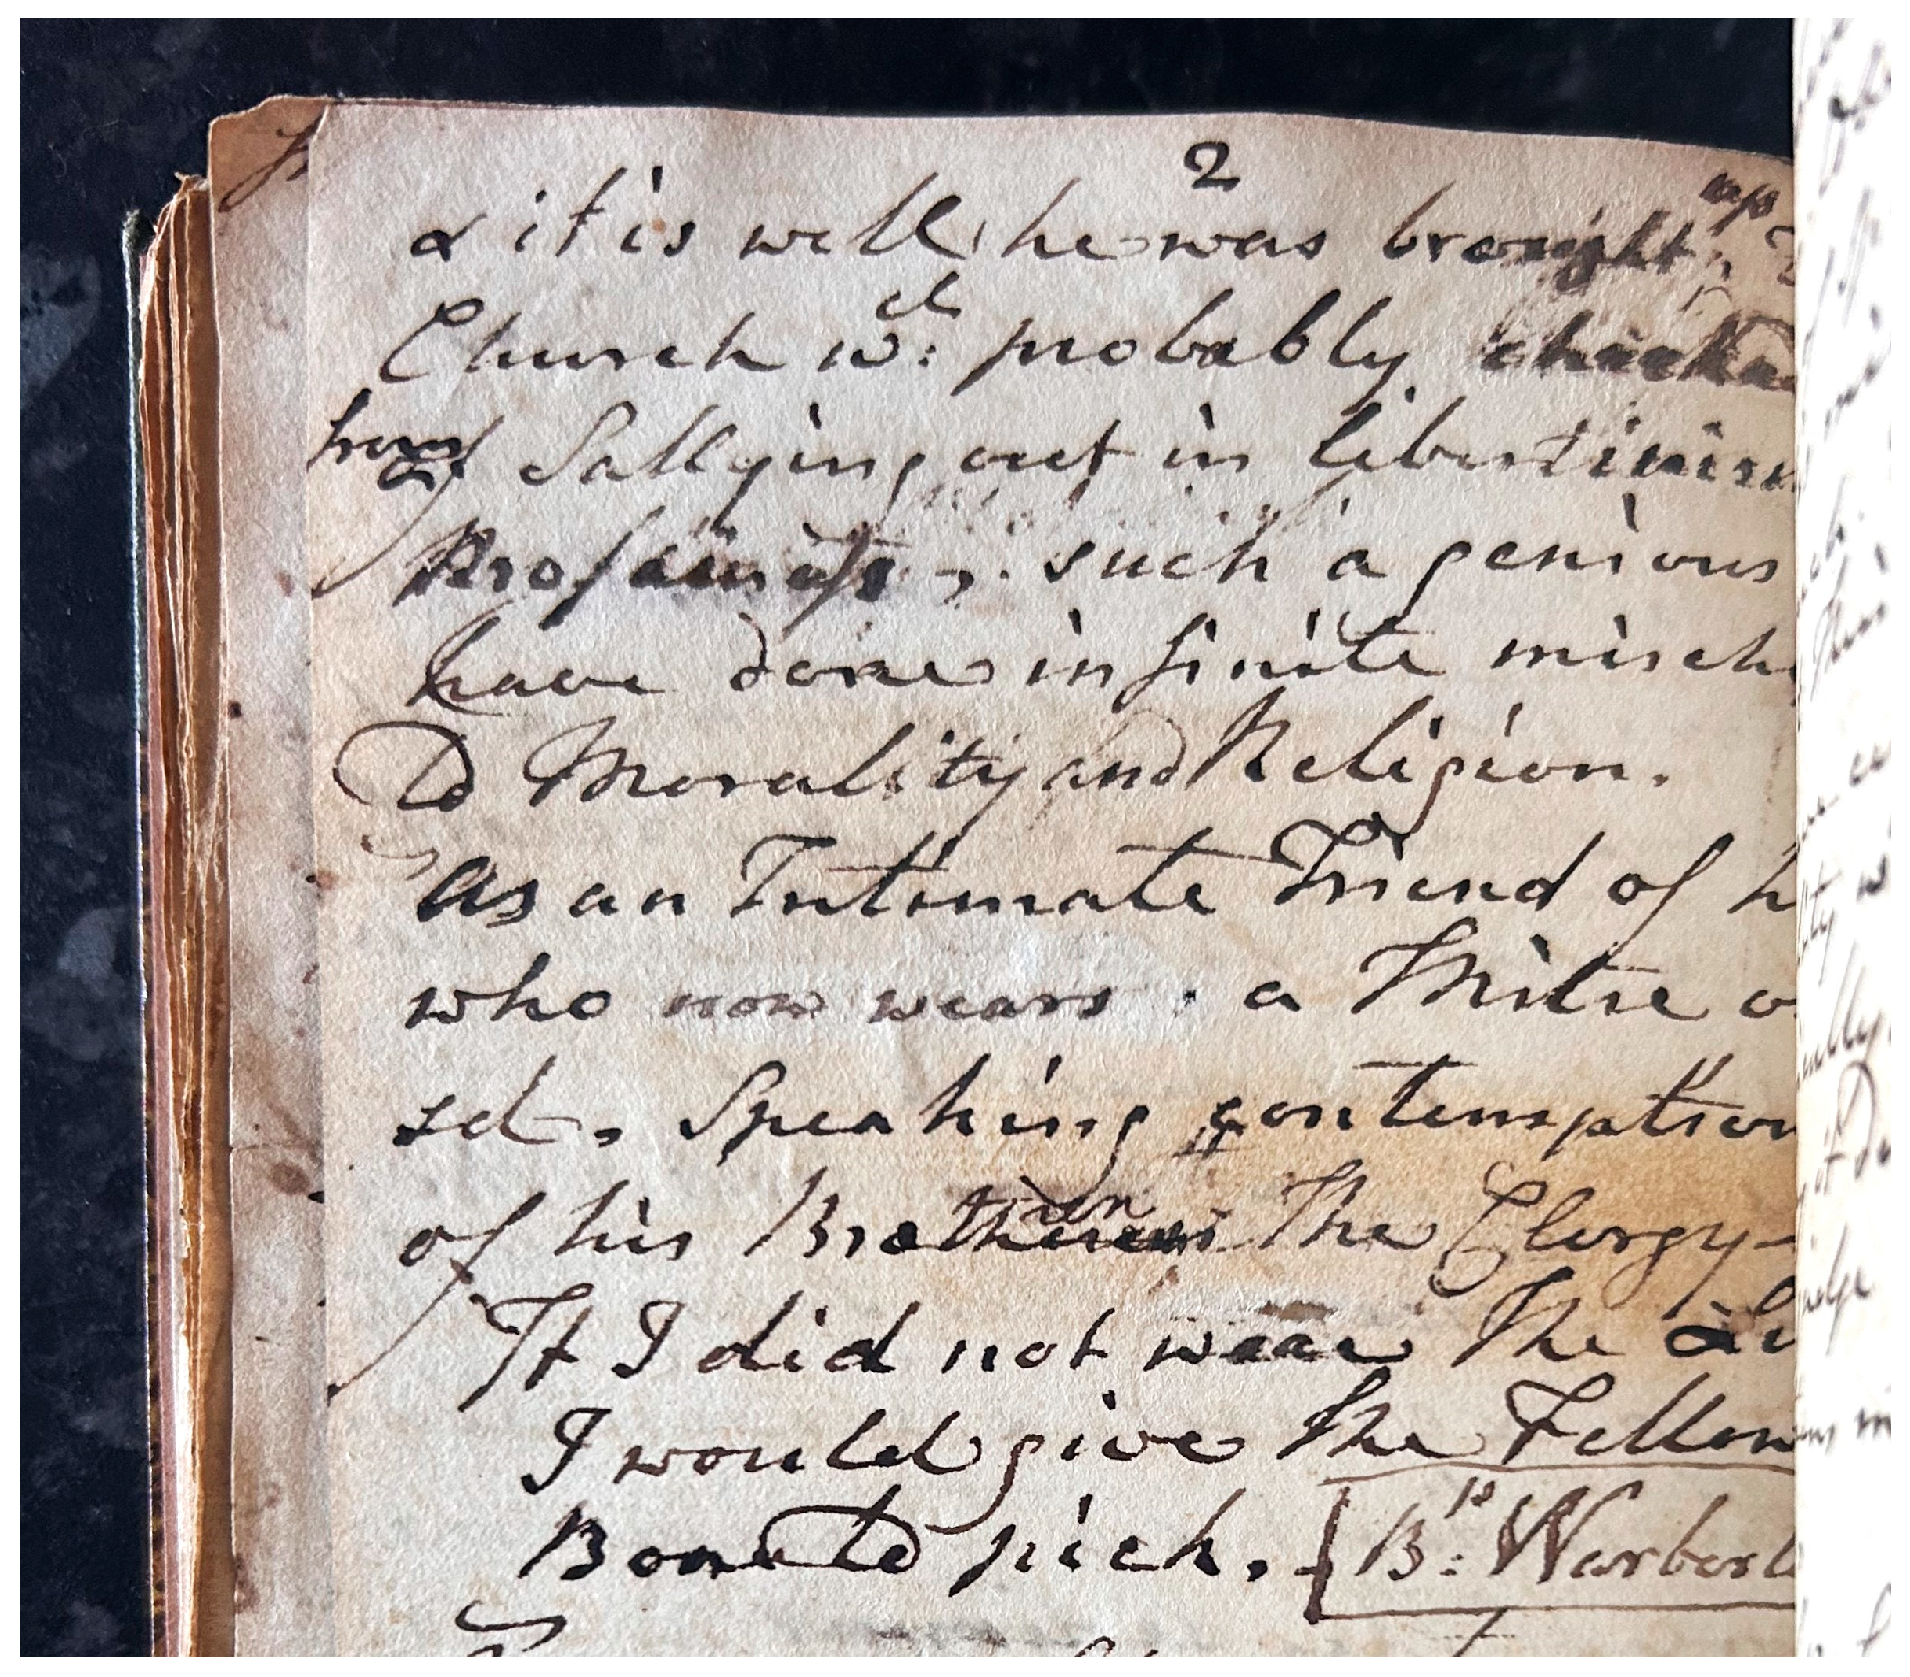 2
& it is well he was brought up
Church wch: probably
from Sallying out in libertinism
Profanity, such a genious
have done infinite misch
To Morality and Religion.
As an Intimate Friend of h
who now wears a Mitre o
sd, Speaking contemptiou
of his Brethren The Clergy-
If I did not wear The
I would give the Fellow
Bone to pick. Bp: Warburt